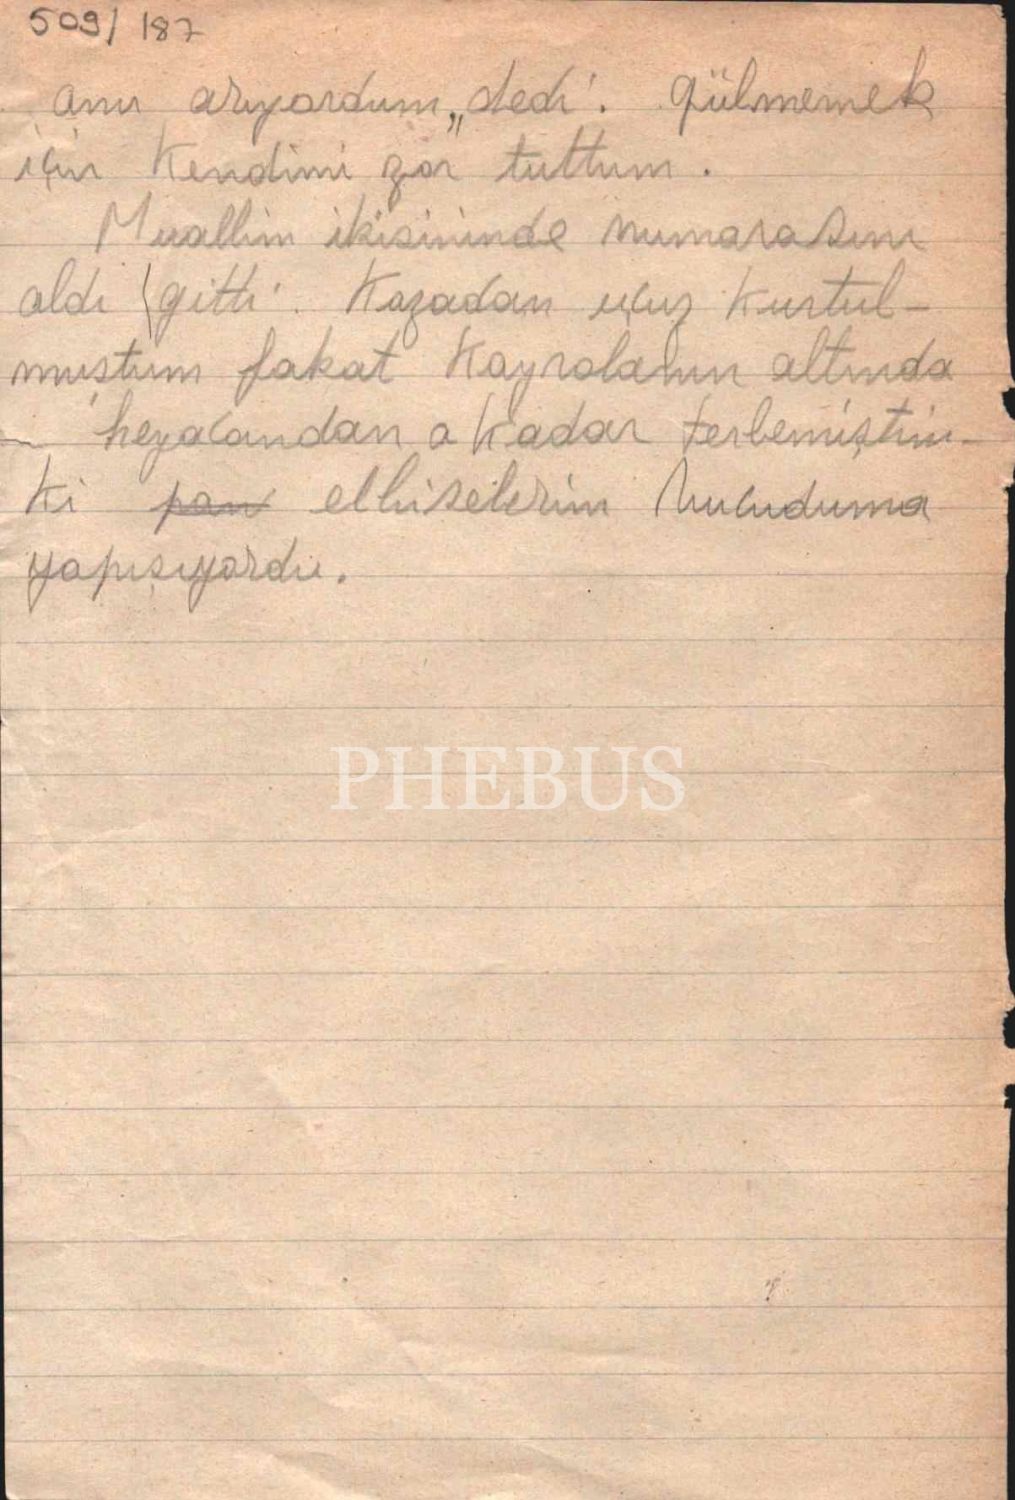 509/187
anı arıyordum„ dedi. gülmemek
için kendimi zor tuttum.
Muallim ikisininde numarasını
aldı gitti. Kazadan ucuz kurtul-
mustum fakat Kayrolanın altında
heyacandan o kadar terlemiştim-
ki pan elbiselerim vucuduma
yapışıyordu.
PHEBUS